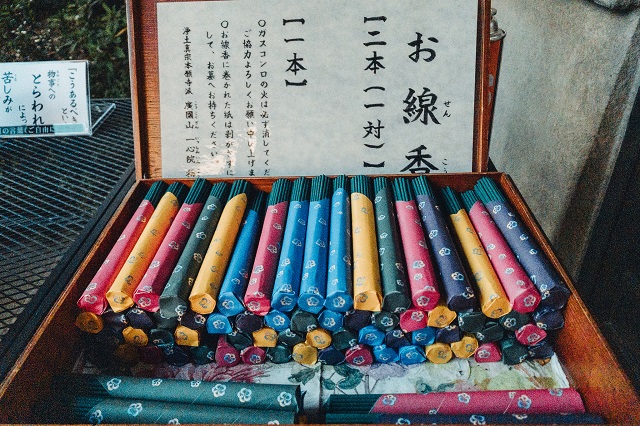 お線香
せん
こう
【二本(一対)】
【一本】
○ガスコンロの火は必ず消してくだ
ご協力よろしくお願い申し上げま
○お線香に巻かれた紙は剥がさずに
して、お墓へお持ちください
浄土真宗本願寺派
一心院
「こうあるべき
とい
物事への
とらわれ
によっ
苦しみが
ご自由に